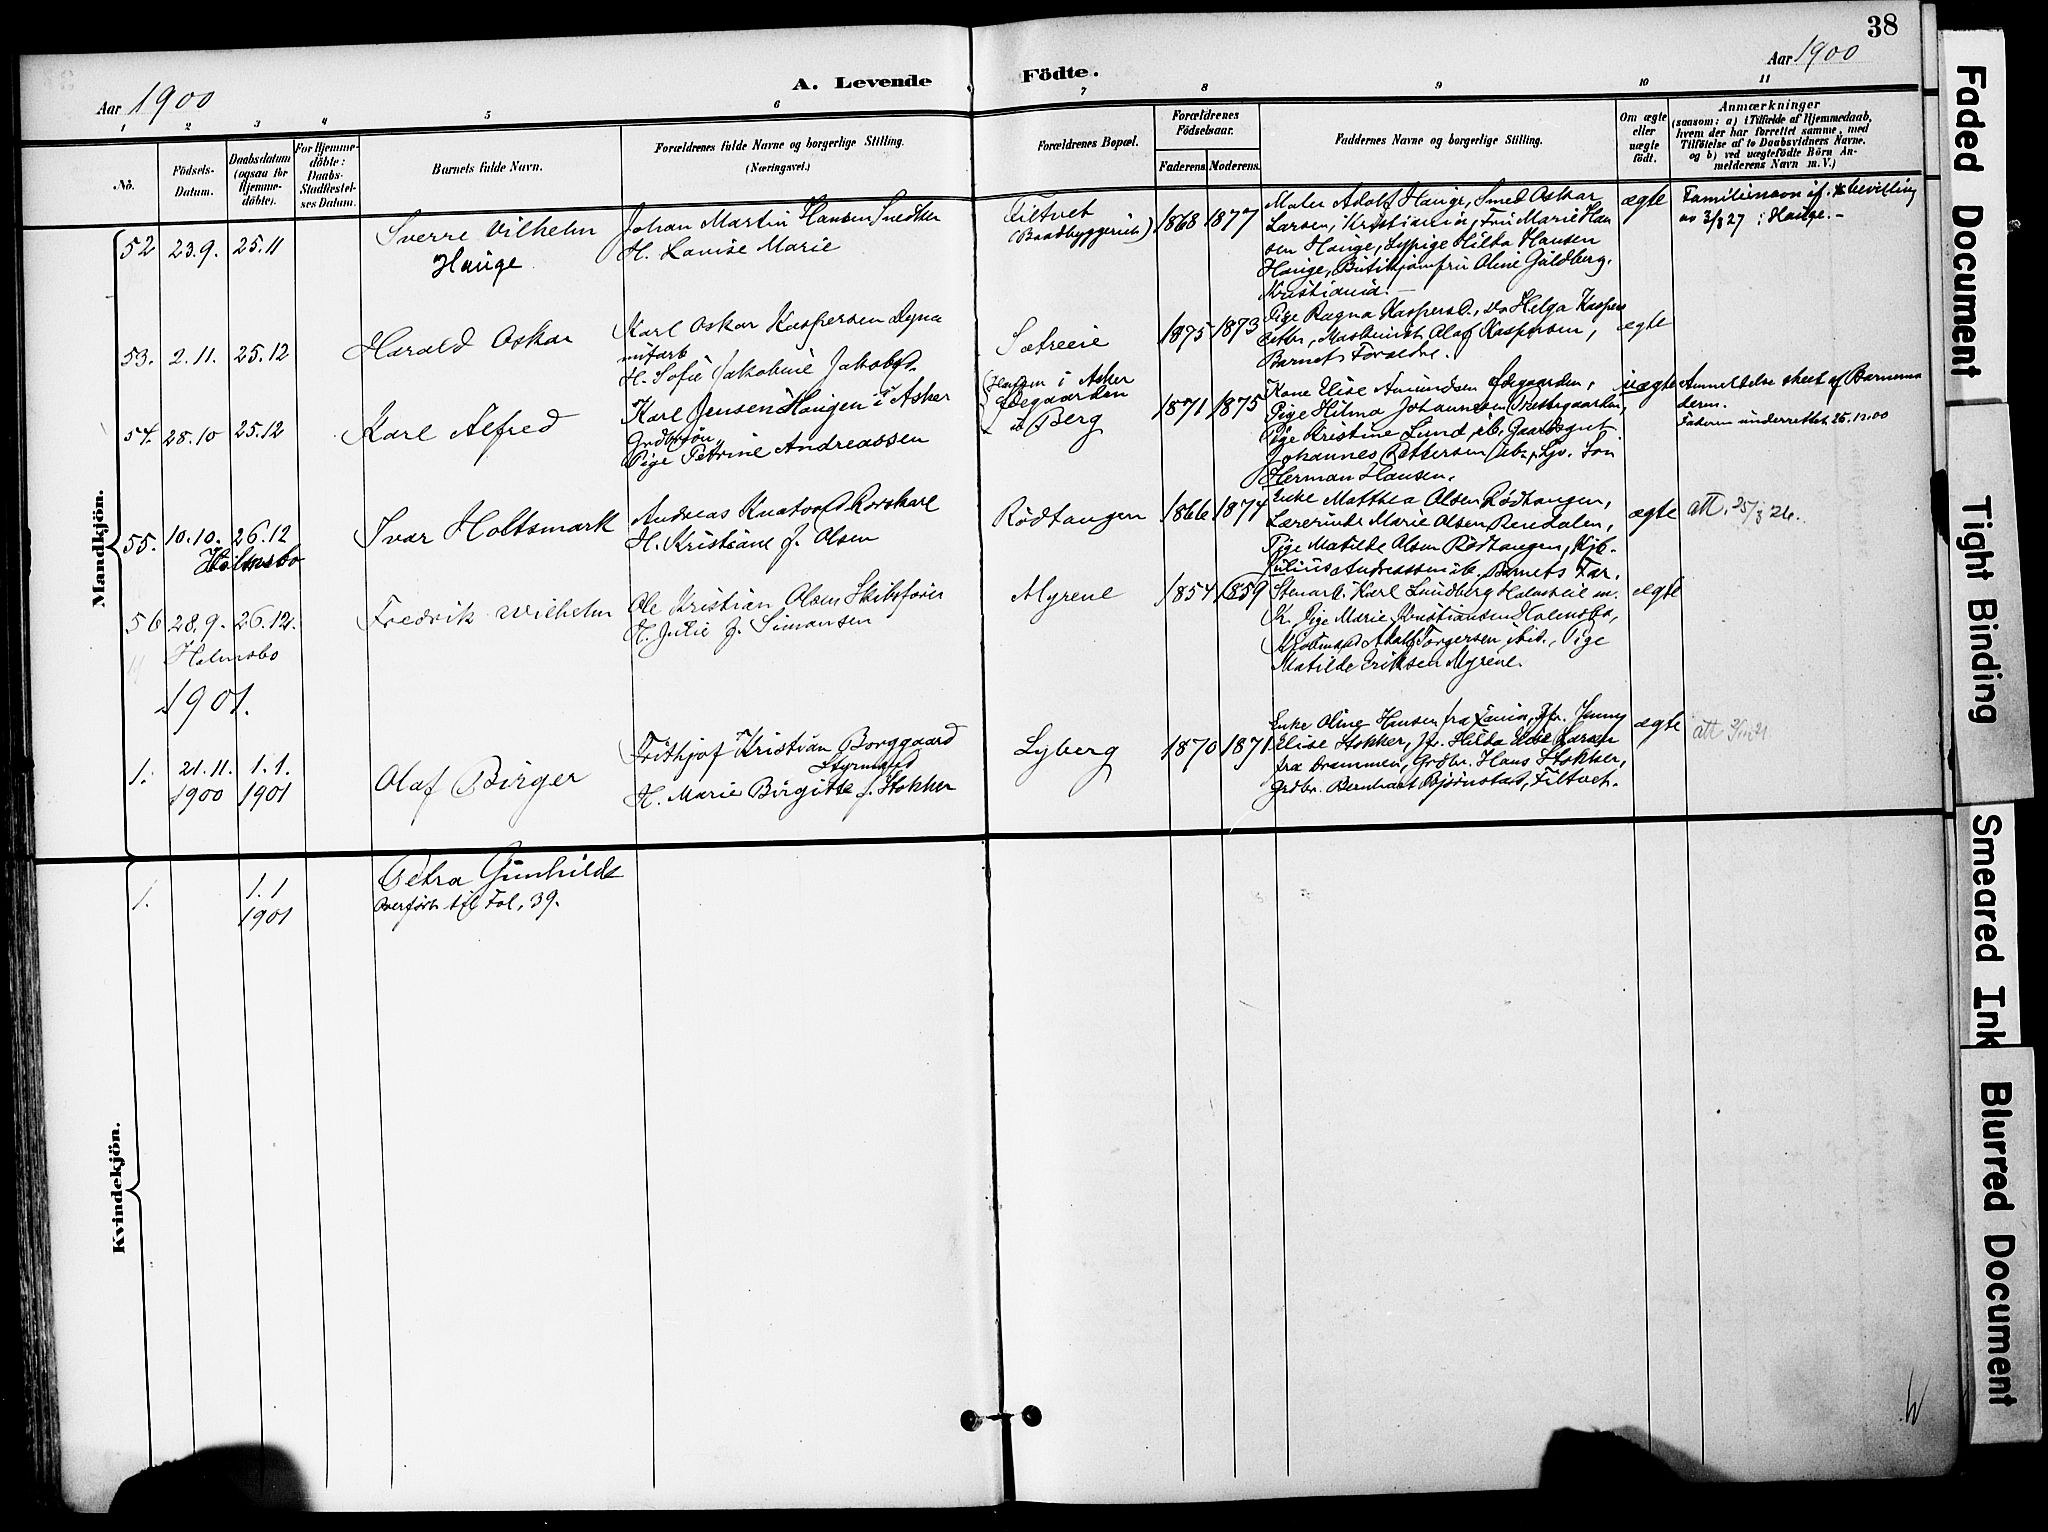 38
Aar 1900
A. Levende Födte.
Aar 1900
1 2 3 4 5 6 7 8 9 10 11
No.
Födsels-
Datum.
Daabsdatum
(ogsaa for
Hjemme-
döbte).
For Hjemme-
döbte:
Daabs-
Stadfæstel-
ses Datum.
Barnets fulde Navn.
Forældrenes fulde Navne og borgerlige Stilling.
(Næringsvei.)
Forældrenes Bopæl.
Forældrenes
Födselsaar.
Faderens. Moderens.
Faddernes Navne og borgerlige Stilling.
Om ægte
eller
uægte
födt.
Anmærkninger
(saasom: a) i Tilfælde af Hjemmedaab,
hvem der har forrettet samme, med
Tilföielse af to Daabsvidners Navne,
og b) ved uægtefödte Börn An-
melderens Navn m. V.)
Mandkjön.
52 23.9. 25.11
Sverre Vilhelm
Hauge
Johan Martin Hansen Snedker
H. Lovise Marie
Filtvet
(Baadbyggerieh)
1868 1877
Maler Adolf Hauge, Smed Oskar
Larsen, Kristiania, Fru Marie Han
sen Hauge, Sypige Hilda Hansen
Hauge, Butikjomfru Oline Guldberg,
Kristiania.
ægte
Familienavn if. bevilling
av 3/8 27 : Hauge.-
53. 2.11. 25.12
Harald Oskar
Karl Oskar Kaspersen Dyna
mitarb
H. Sofie Jakobine Jakobsd.
Sætreeie
1875 1873
Pige Ragna Kaspersd., do Helga Kaspers
datter, Maskinist Olaf Kaspersen,
Barnets Forældre.
ægte
54. 28.10 25.12
Karl Alfred
Karl Jensen Haugen i Asker
Grdbrsøn
Pige Petrine Andreassen
Haugen i Asker
Ødegaarden
Berg
1871 1875
Kone Elise Amundsen Ødegaarden,
Pige Hilma Johannesen Præstegaarden,
Pige Kristine Lund, ib, Gaardsgut
Johannes Pettersen ib., Sjv. Søn
Herman Hansen.
uægte
Anmeldelse skeet af Barnemo
deren.
Faderen underrettet 26.12.00
55. 10.10. 26.12
Holmsbo
Ivar Holtsmark
Andreas Knatvold Rorskarl
H. Kristiane f. Olsen
Rødtangen
1866 1874
Enke Matthea Olsen Rødtangen,
Lærerinde Marie Olsen Rendalen,
Pige Matilde Olsen Rødtangen, Kjb.
Julius Andreassen ib. Barnets Far.
ægte
att. 25/3 26.
56 28.9. 26.12.
Holmsbo
Fredrik Wilhelm
Ole Kristian Olsen Skibsfører
H. Julie f. Simonsen
Myrene
1854 1859
Stenarb. Karl Lundberg Holmseie m.
K. Pige Marie Kristiansen Holmsbo,
Adolf Torgersen ibid., Pige
Matilde Eriksen Myrene.
ægte
1901.
1. 21.11. 1900 1.1. 1901
Olaf Birger
Frithjof Kristian Borggaard
Styrmand
H. Marie Birgitte f. Stokker
Lyberg
1870 1871
Enke Oline Hansen fra Xania, Jfr. Jenny
Elise Stokker, Jfr. Hilda Elise Larsen
fra Drammen, Grdbr. Hans Stokker,
Grdbr. Bernhart Bjørnstad, Filtvet.
ægte
att
Kvindekjön.
1. 1.1 1901
Petra Gunhilda
Overført til Fol. 39.
Faded Document
Tight Binding
Smeared Ink
Blurred Document